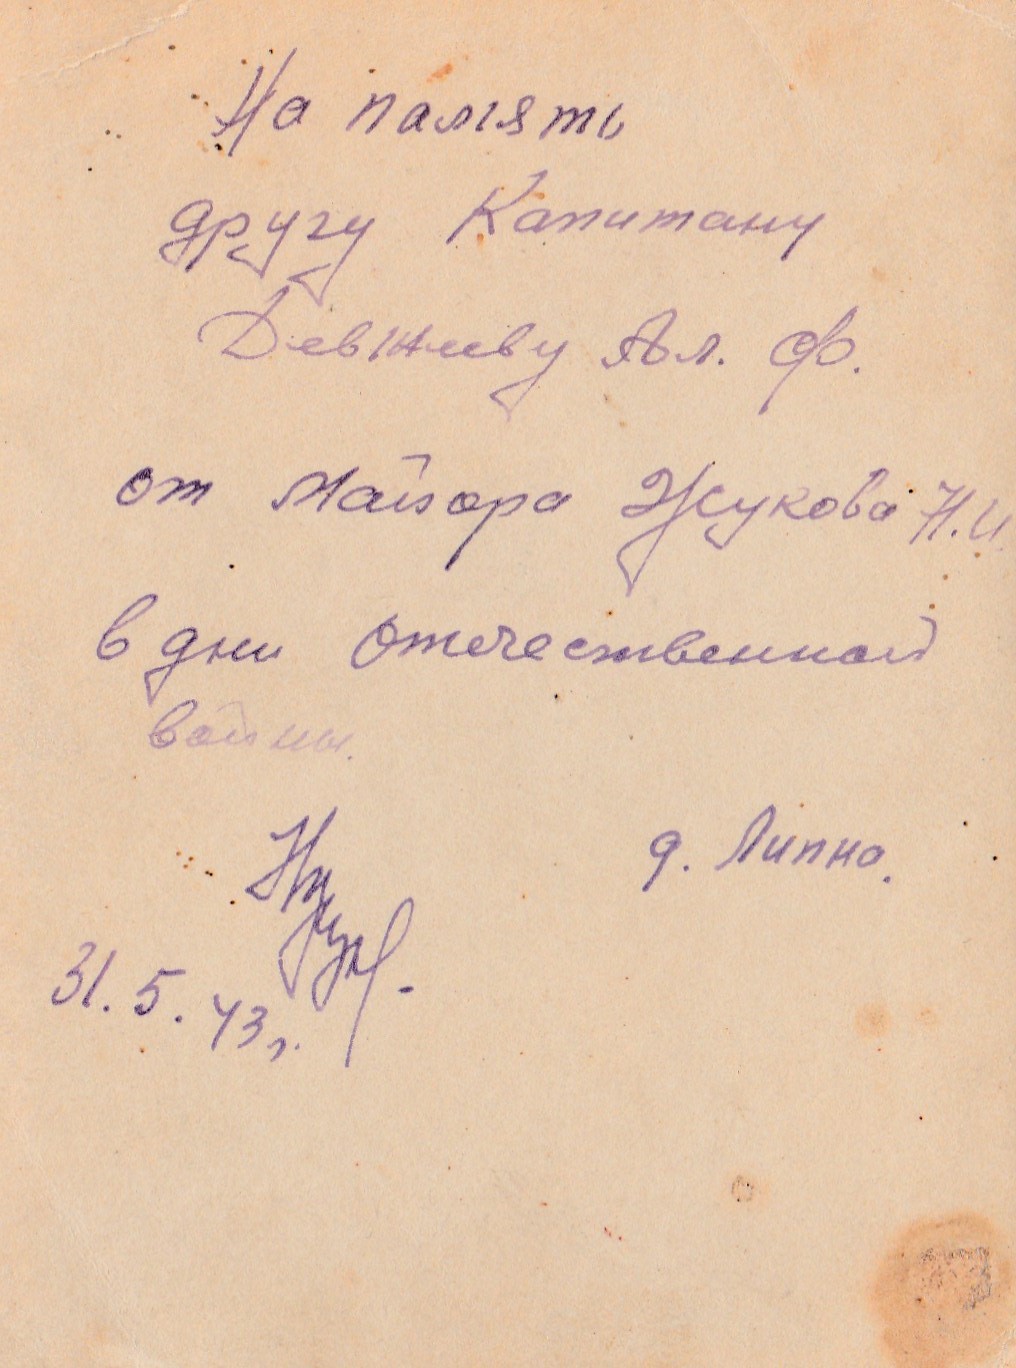 На память
другу Капитану
Девжиеву Ал. Ф.
от Майора Жукова Н.И.
в дни Отечественной
войны.
д. Липно.
31.5.43г.